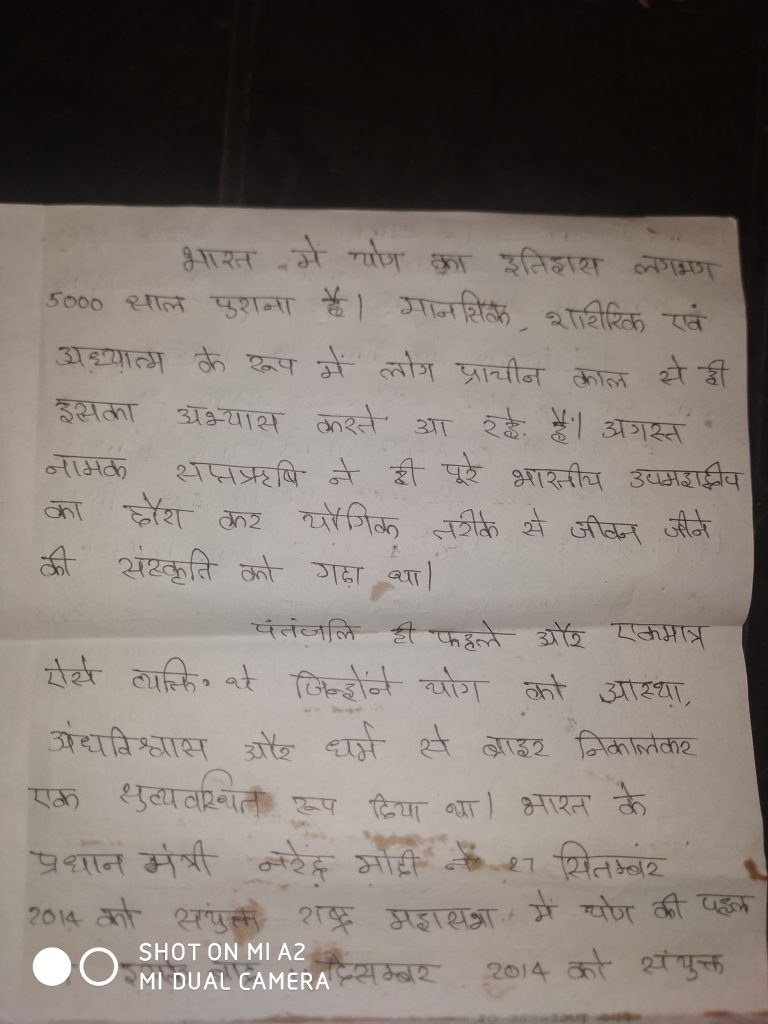 भारत में योग का इतिहास लगभग
5000 साल पुराना है। मानसिक, शारीरिक एवं
अध्यात्म के रूप में लोग प्राचीन काल से ही
इसका अभ्यास करते आ रहे हैं। अगस्त
नामक सप्तऋषि ने ही पूरे भारतीय उपमहाद्वीप
का दौरा कर यौगिक तरीके से जीवन जीने
की संस्कृति को गढ़ा था।
पंतंजलि ही पहले और एकमात्र
ऐसे व्यक्ति थे जिन्होंने योग को आस्था,
अंधविश्वास और धर्म से बाहर निकालकर
एक सुव्यवस्थित रूप दिया था। भारत के
प्रधान मंत्री नरेंद्र मोदी ने 27 सितम्बर
2014 को संयुक्त राष्ट्र महासभा में योग की पहल
दिसम्बर 2014 को संयुक्त
SHOT ON MI A2
MI DUAL CAMERA